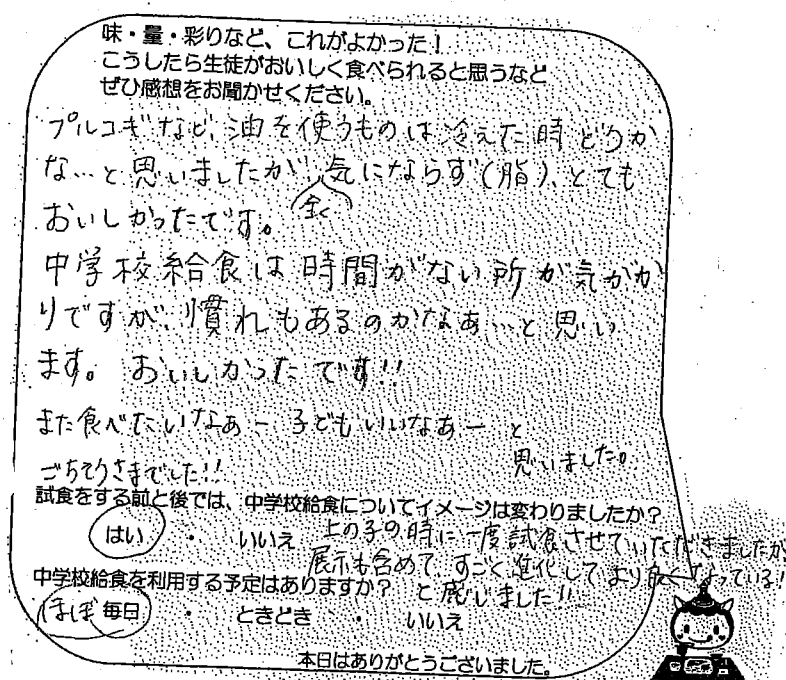 味・量・彩りなど、これがよかった！
こうしたら生徒がおいしく食べられると思うなど
ぜひ感想をお聞かせください。
プルコギなど、油を使うものは冷えた時どうか
な…と思いましたが、全く気にならず(脂)、とても
おいしかったです。
中学校給食は時間がない所が気がか
りですが、慣れもあるのかなぁ…と思い
ます。おいしかったです!!
また食べたいなぁー 子どもいいなぁー と
思いました。
ごちそうさまでした!!
試食をする前と後では、中学校給食についてイメージは変わりましたか？
はい ・ いいえ
上の子の時に一度試食させていただきましたが
展示も含めて、すごく進化してより良くなっている!
と感じました!!
中学校給食を利用する予定はありますか？
ほぼ毎日 ・ ときどき ・ いいえ
本日はありがとうございました。